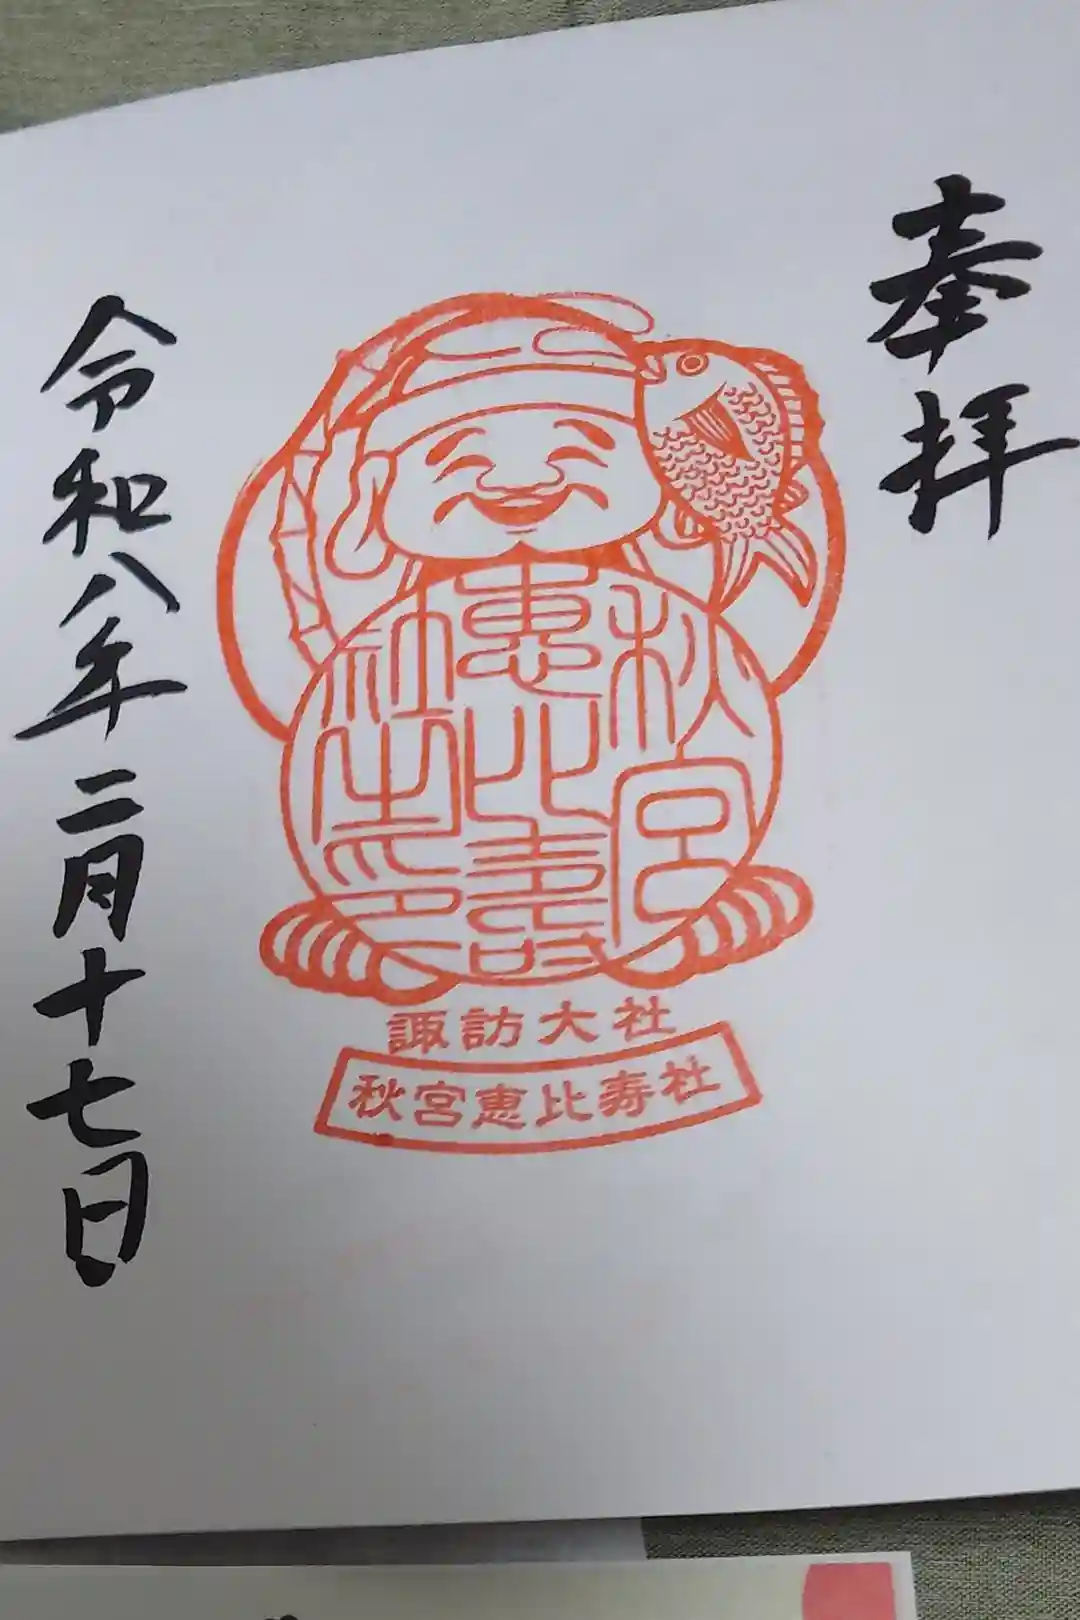 奉拝
秋宮
惠比壽
社之印
諏訪大社
秋宮恵比寿社
令和八年二月十七日